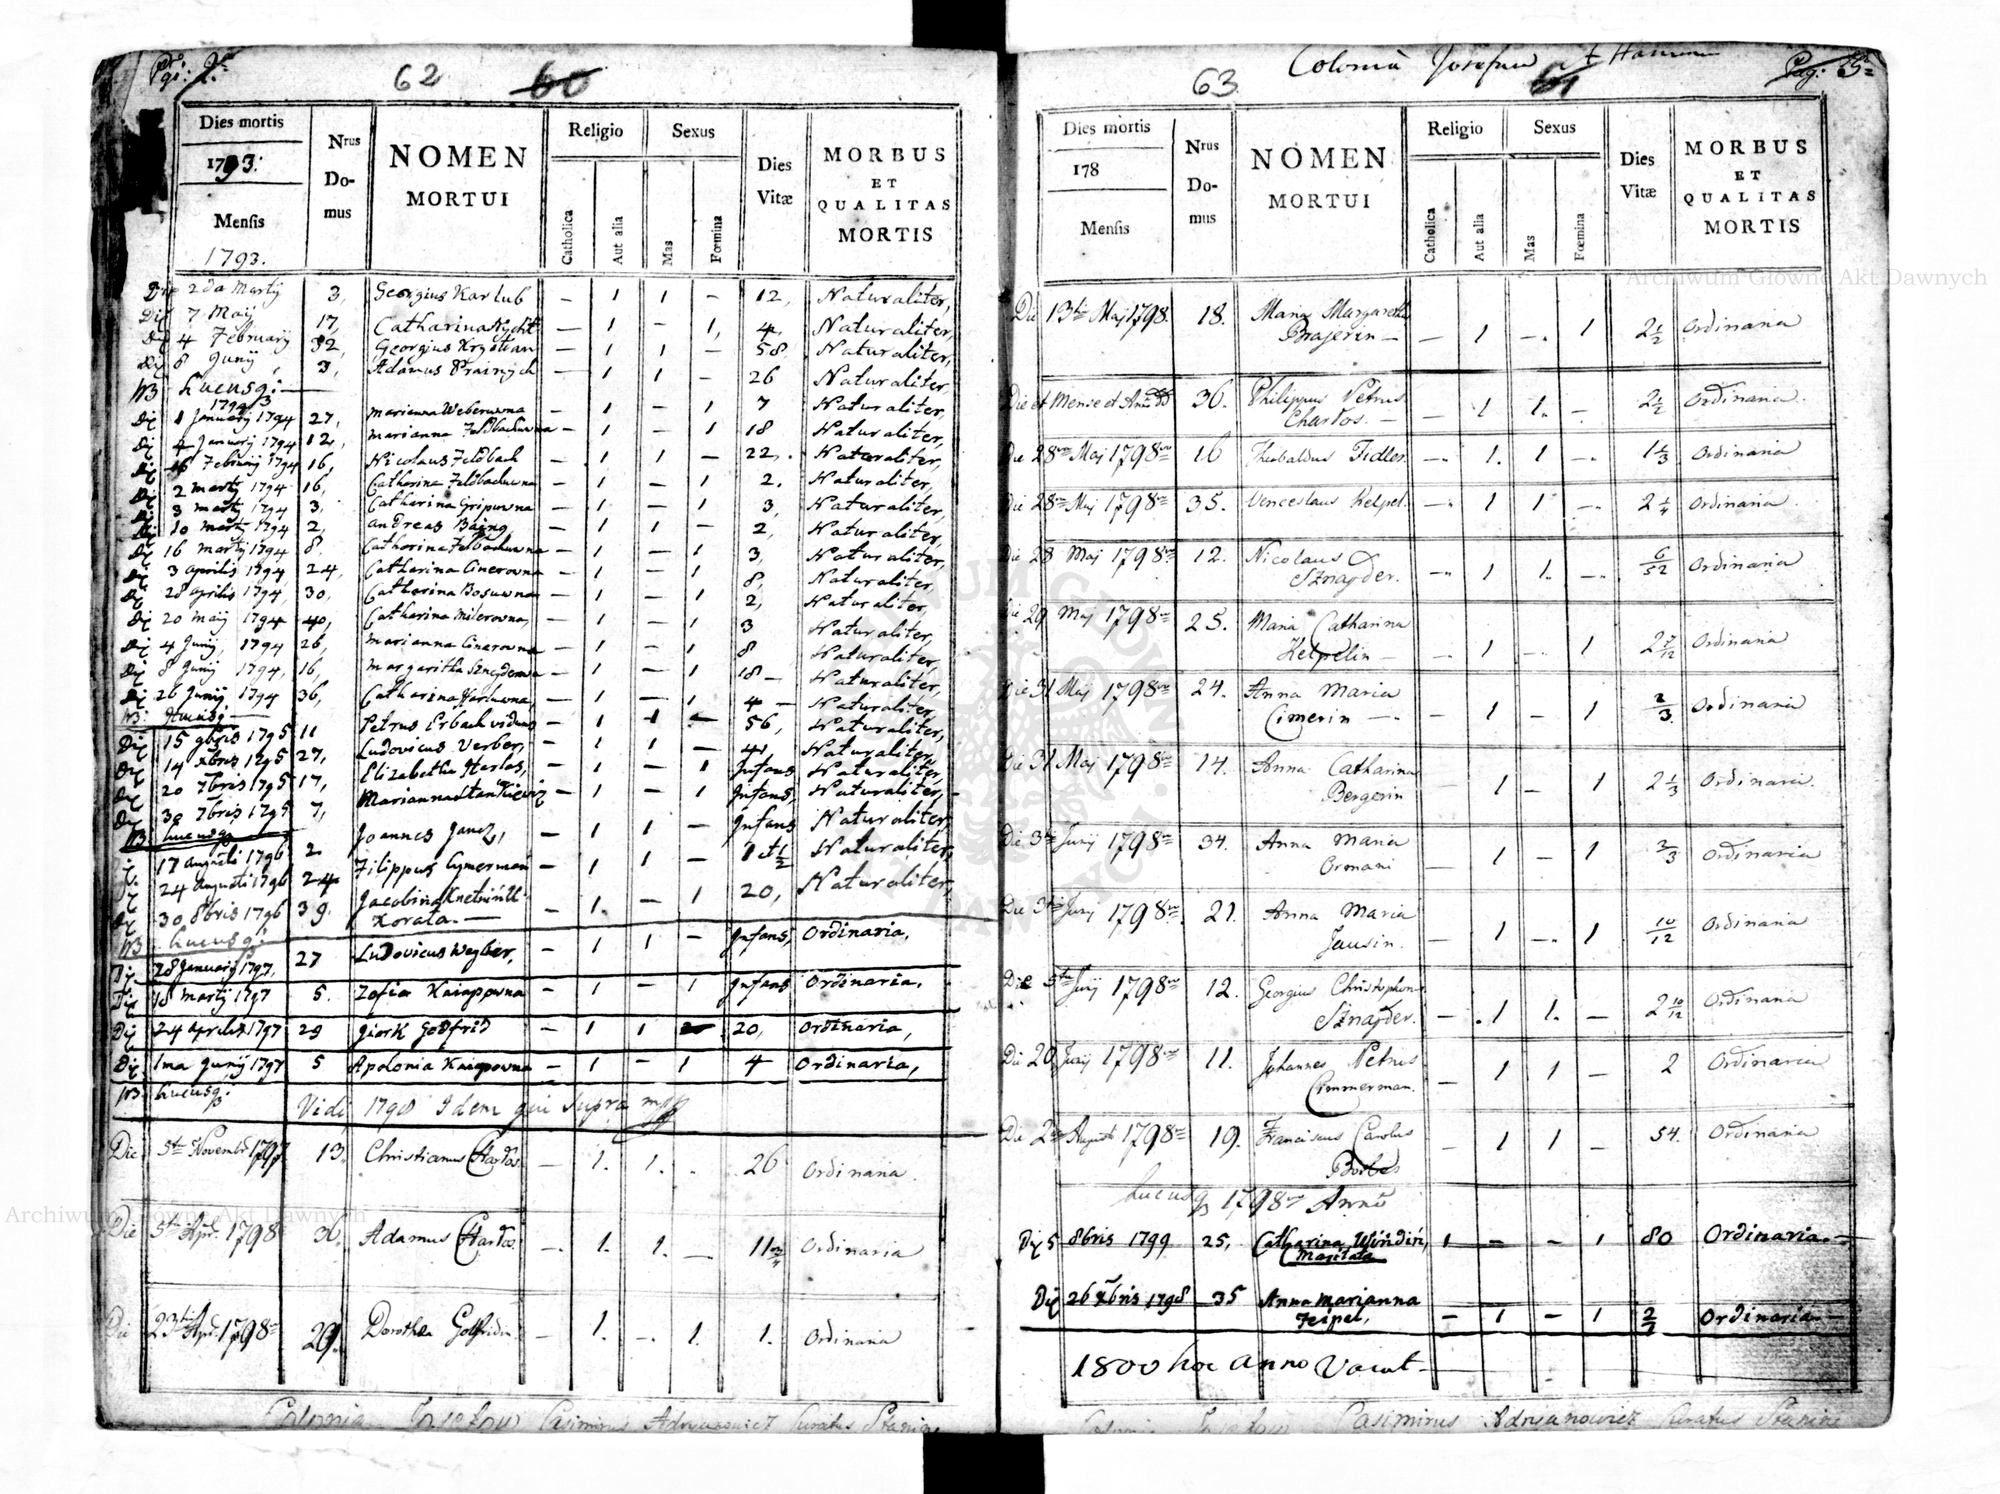 62
Dies mortis
1793:
Mensis
1793.
Nrus Domus
NOMEN
MORTUI
Religio
Catholica
Aut alia
Sexus
Mas
Fœmina
Dies Vitæ
MORBUS
ET
QUALITAS
MORTIS
Die 2da Martij 3, Georgius Karlub – 1 1 – 12, Naturaliter,
Die 7 Maij 17, Catharina – 1 – 1, 4, Naturaliter,
Die 4 February 32, Georgius Krystian – 1 1 – 58 Naturaliter,
Die 8 Junij 3, Adamus – 1 1 – 26 Naturaliter,
NB Hucusq:
1794
Die 1 January 1794 27, Marianna Weberuwna – 1 – 1 7 Naturaliter,
Die 4 January 1794 12, Marianna Feldbachuwna – 1 – 1 18 Naturaliter,
Die 16 February 1794 16, Nicolaus Feldbach – 1 1 – 22. Naturaliter,
Die 2 Martij 1794 16, Catharina Feldbachuwna – 1 – 1 2. Naturaliter,
Die 3 Martij 1794 3, Catharina Gripuwna – 1 – 1 3, Naturaliter,
Die 10 Martij 1794 2, Andreas – 1 1 – 2, Naturaliter,
Die 16 Martij 1794 8. Catharina Felbachuwna – 1 – 1 3, Naturaliter,
Die 3 aprilis 1794, 24, Catharina Cinerowna – 1 – 1 8, Naturaliter,
Die 28 aprilis 1794, 30, Catharina Bosuwna – 1 – 1 2, Naturaliter,
Die 20 Maij 1794 40, Catharina Milerowna, – 1 – 1 3 Naturaliter,
Die 4 Junij, 1794 26, Marianna Cinerowna – 1 – 1 8 Naturaliter,
Die 8 Junij 1794, 16, Margaritha – 1 – 1 18 – Naturaliter,
Die 26 Junij 1794 36, Catharina – 1 – 1 4 – Naturaliter,
NB: Hucusq
Die 15 9bris 1795 11 Petrus Erbach viduus – 1 1 – 56, Naturaliter,
Die 14 Xbris 1795 27, Ludovicus Verber, – 1 1 – 41, Naturaliter,
Die 20 7bris 1795 17, Elizabetha Harlas, – 1 – 1 Jnfans, Naturaliter,
Die 30 7bris 1795 7, Marianna – 1 – 1 Jnfans, Naturaliter,
NB Hucusq
17 augusti 1796 2 Joannes Janc, – 1 1 – Jnfans Naturaliter,
24 augusti 1796 24 Filippus Cymerman – 1 1 – 1 1/2 Naturaliter,
30 8bris 1796 39. Jacobina – 1. – 1 20, Naturaliter,
NB Hucusq:
Die 28 January 1797, 27 Ludovicus Weyber, – 1 1 – Jnfans, Ordinaria,
Die 18 Martij 1797 5. Zofia Knapowna – 1 – 1 Jnfans Ordinaria,
Die 24 Aprilis 1797 29 Jierk Godfrid – 1 1 20, Ordinaria,
Die 1ma Junij 1797 5 Apolonia Knapowna – 1 – 1 4 Ordinaria,
NB. Hucusq:
Vidi 1798 Idem qui supra mpp
Die 5ta Novemb 1797 13. Christianus Chardos – 1. 1. – 26 Ordinaria.
Die 5ta Apr. 1798 36. Adamus Chardos. – 1. 1. – 11 3/4 Ordinaria
Die 23tia Apr. 1798 29. Dorothea Golfridin. – 1. – 1. 1. Ordinaria
Colonia Josefow Casimirus Adryanowicz Curatus
Colonia Josefow et
63
Dies mortis
178
Mensis
Nrus Domus
NOMEN
MORTUI
Religio
Catholica
Aut alia
Sexus
Mas
Fœmina
Dies Vitæ
MORBUS
ET
QUALITAS
MORTIS
Die 13tia Maj 1798. 18. Maria Margaretha
Brajerin – – 1 – 1 2 1/2 Ordinaria
Die et Mense et Anno 36. Philippus Petrus
Chardos. – – 1 1. – 2 1/2 Ordinaria.
Die 28va Maj 1798 16 Theobaldus Fidler. – 1. 1 – 1 1/3 Ordinaria
Die 28va Maj 1798 35. Venceslaus Kelpel. – 1 1 – 2 1/4 Ordinaria
Die 28 Maj 1798 12. Nicolaus
Sznajder. – 1 1. – 6/52 Ordinaria
Die 29 Maj 1798 25. Maria Catharina
Helpelin – – 1 – 1 2 7/12 Ordinaria
Die 31 Maj 1798 24. Anna Maria
Cimerin – – 1 – 1 2/3 Ordinaria
Die 31 Maj 1798 14. Anna Catharina
Bergerin 1 – 1 2 1/3 Ordinaria.
Die 3tia Junij 1798 34. Anna Maria
1 – 1 2/3 Ordinaria
Die 3tia Junij 1798 21. Anna Maria
Jausin. – 1 – 1 10/12 Ordinaria
Die 5ta Junij 1798 12. Georgius Christophorus
Sznajder. – 1 1. – 2 10/12 Ordinaria
Die 20 Junij 1798 11. Johannes Petrus
Cimmerman. – 1 1 – 2 Ordinaria
Die 2da August 1798 19. Franciscus Carolus
– 1 1 – 54. Ordinaria
Hucusq 1798 Anno
Die 5 8bris 1799 25, Catharina Windin, 1 – – 1 80 Ordinaria.
Maritata
Die 26 Xbris 1798 35 Anna Marianna
Feipel, – 1 – 1 2/7 Ordinaria
1800 hoc Anno Vacat
Colonia Josefow Casimirus Adryanowicz Curatus
Archiwum Główne Akt Dawnych
Archiwum Główne Akt Dawnych